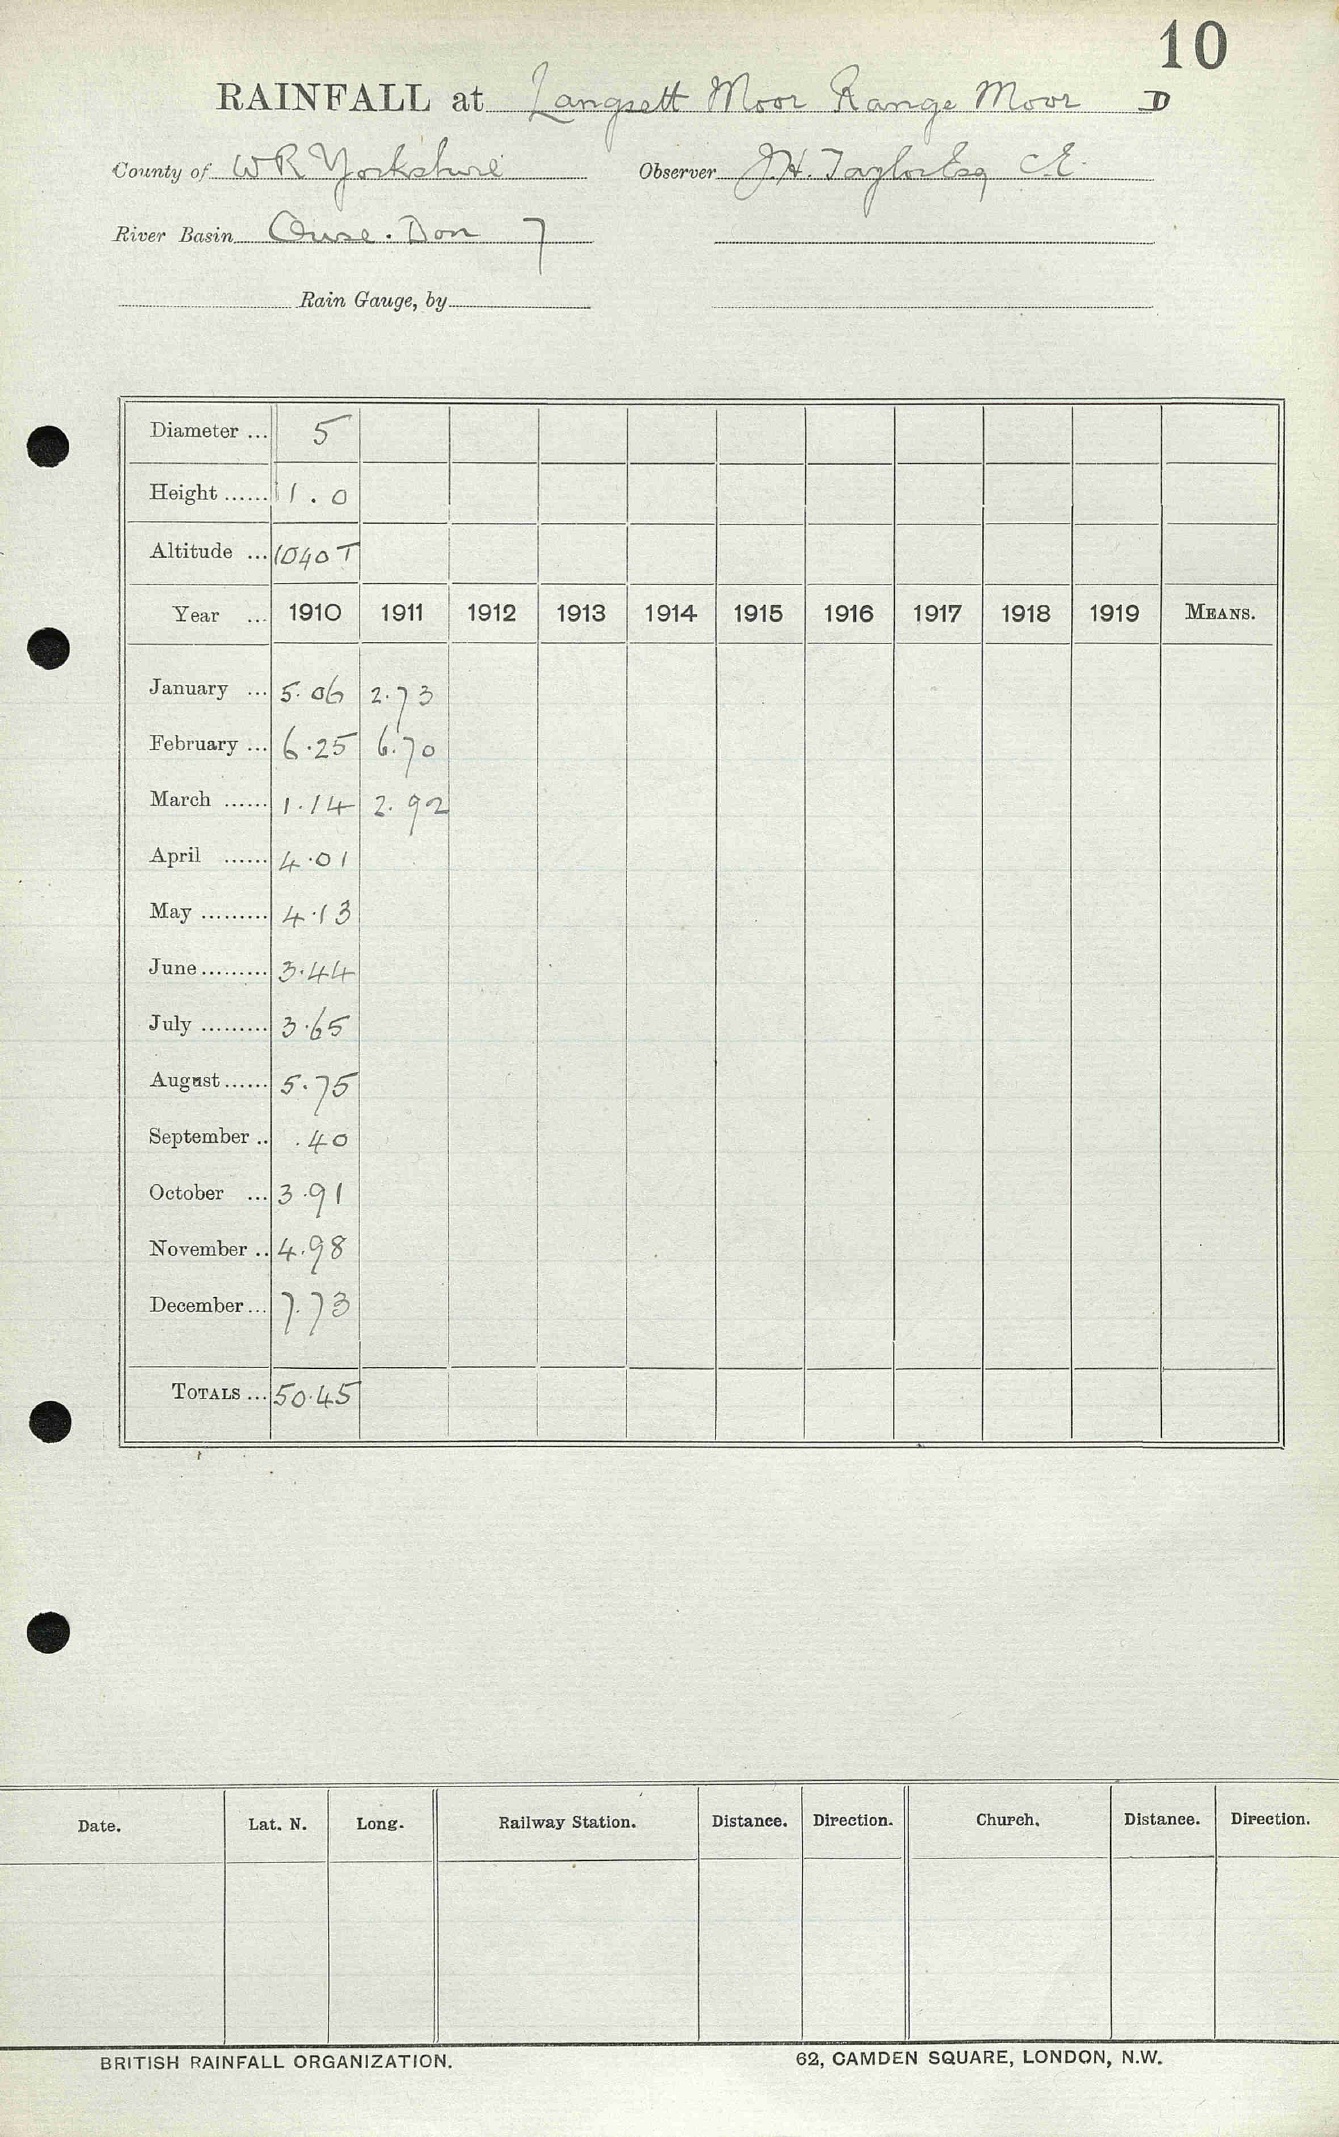 10
RAINFALL at Langsett Moor Range Moor D
County of WR Yorkshire Observer J.H. Taylor Esq C.E.
River Basin Ouse. Don 7
Rain Gauge, by
Diameter ... 5
Height ...... 1.0
Altitude ... 1040 T
Year ... 1910 1911 1912 1913 1914 1915 1916 1917 1918 1919 MEANS.
January ... 5.06 2.73
February ... 6.25 6.70
March ...... 1.14 2.92
April ...... 4.01
May ......... 4.13
June ......... 3.44
July ......... 3.65
August ...... 5.75
September .. .40
October ... 3.91
November .. 4.98
December ... 7.73
TOTALS ... 50.45
Date. Lat. N. Long. Railway Station. Distance. Direction. Church. Distance. Direction.
BRITISH RAINFALL ORGANIZATION. 62, CAMDEN SQUARE, LONDON, N.W.